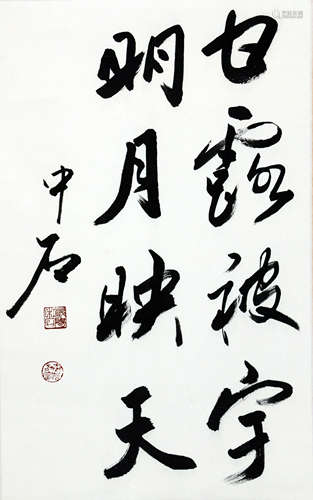 甘露被宇
明月映天
中石